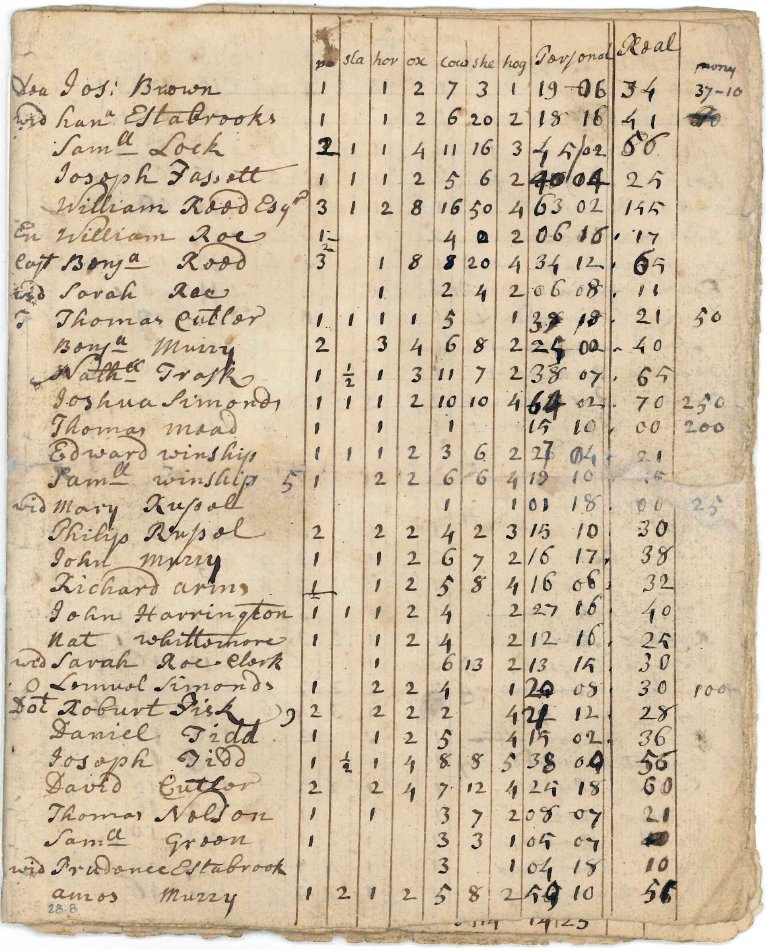 sla hor ox cow she hog Personal Real
mony
Dea Jos: Brown 1 1 2 7 3 1 19 06 34 37-10
wid han^a Estabrooks 1 1 2 6 20 2 18 16 41
Sam^ll Lock 2 1 1 4 11 16 3 45/02 56
Joseph Fassett 1 1 1 2 5 6 2 40 04 25
William Reed Esq^r 3 1 2 8 16 50 4 63 02 155
En William Roe 1 4 2 06 16 17
Capt Benj^a Reed 3 1 8 8 20 4 34 12 65
wid Sarah Roe 1 2 4 2 06 08 11
Thomas Cutler 1 1 1 1 5 1 18 21 50
Benj^a Murry 2 3 4 6 8 2 25 02 40
Nath^ll Trask 1 ½ 1 3 11 7 2 38 07 65
Joshua Simonds 1 1 1 2 10 10 4 64 02 70 250
Thomas mead 1 1 1 15 10 00 200
Edward winship 1 1 1 2 3 6 2 04 21
Sam^ll winship 5 1 2 2 6 6 4 19 10
wid Mary Russel 1 1 01 18 00 25
Philip Russel 2 2 2 4 2 3 15 10 30
John Murry 1 1 2 6 7 2 16 17 38
Richard arms 1 1 2 5 8 4 16 06 32
John Harrington 1 1 1 2 4 2 27 16 40
Nat Whittemore 1 1 2 4 2 12 16 25
wid Sarah Roe Clerk 1 6 13 2 13 15 30
Lemuel Simonds 1 2 2 4 1 20 08 30 100
Dot Roburt Fisk 2 2 2 2 4 12 28
Daniel Tidd 1 1 2 5 4 15 02 36
Joseph Tidd 1 ½ 1 4 8 8 5 38 04 56
David Cutler 2 2 4 7 12 4 25 18 60
Thomas Nelson 1 1 3 7 2 08 07 21
Sam^ll Green 1 3 3 1 05 07
wid Prudence Estabrook 3 1 04 18 10
amos Murry 1 2 1 2 5 8 2 59 10 56
28-8